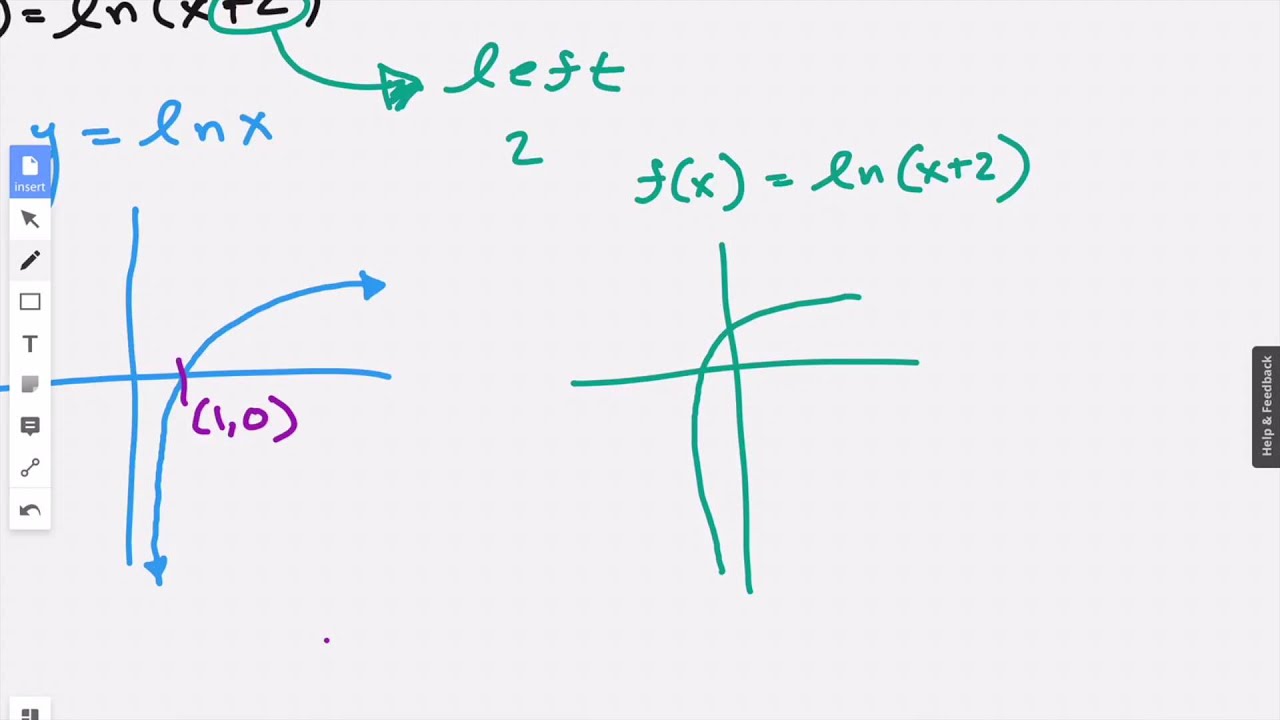 ) = ln(x+2)
left
2
y = ln x
f(x) = ln(x+2)
(1,0)
insert
T
Help & Feedback